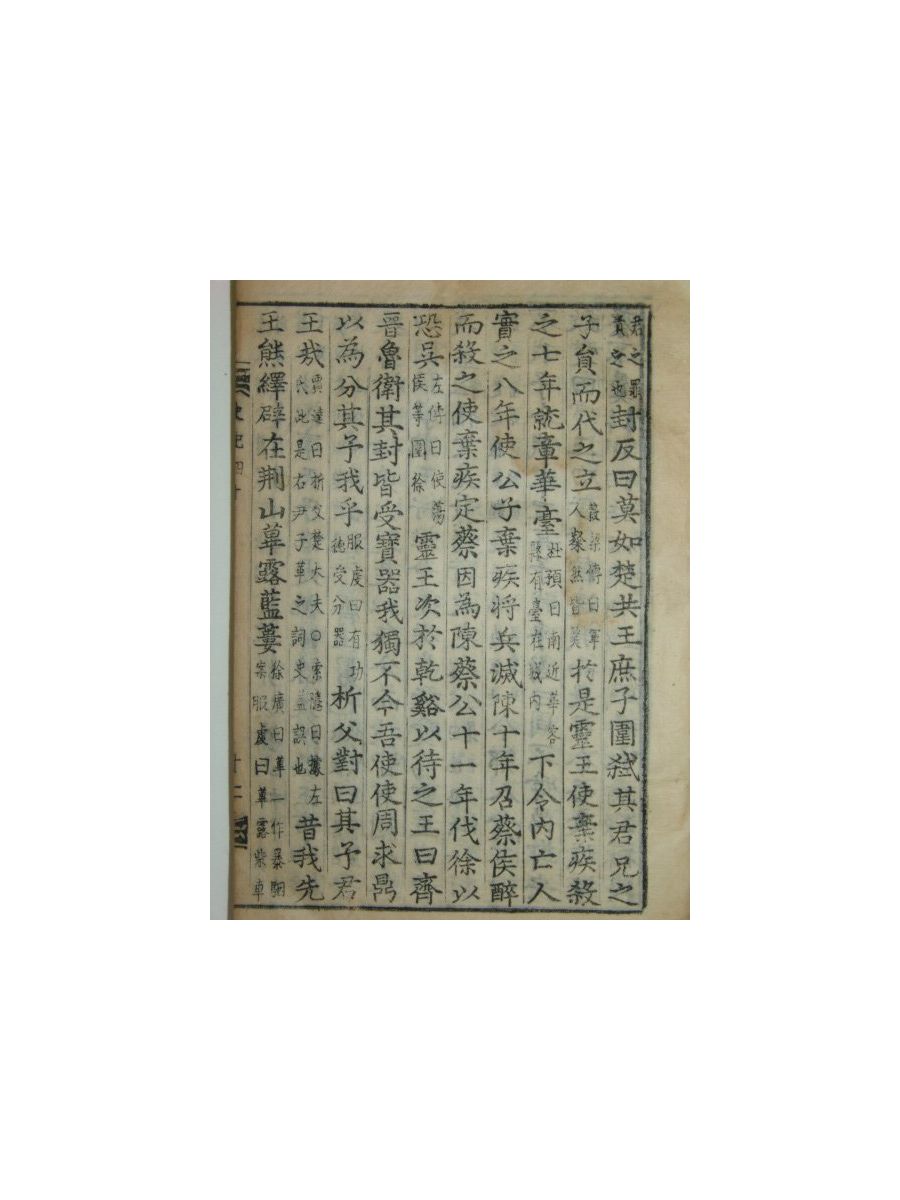 君之罪責之也封反曰莫如楚共王庶子圍弑其君兄之
子負而代之立穀梁傳曰軍人粲然皆笑於是靈王使棄疾殺
之七年就章華臺杜預曰南近華容降有臺在城內下令內亡人
實之八年使公子棄疾將兵滅陳十年召蔡侯醉
而殺之使棄疾定蔡因為陳蔡公十一年伐徐以
恐吳左傳曰使蕩侯等圍徐靈王次於乾谿以待之王曰齊
晉魯衛其封皆受寶器我獨不今吾使使周求鼎
以為分其予我乎服虔曰有功德受分器析父對曰其予君
王哉賈逵曰析父楚大夫○索隱曰據左氏此是右尹子革之詞史蓋誤也昔我先
王熊繹辟在荆山蓽露藍蔞徐廣曰蓽一作暴駰案服虔曰蓽露柴車
史記四十
十二